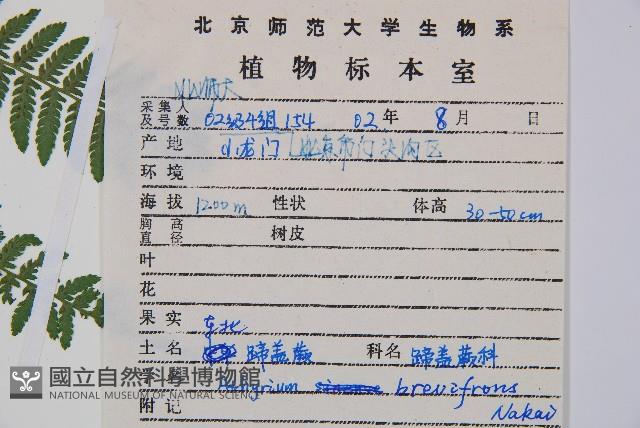 北京师范大学生物系
植物标本室
采集人及号数 02级4组 154 02年 8月 日
产地 小龙门 北京市门头沟区
环境
海拔 1200m 性状 体高 30-50cm
胸高直径 树皮
叶
花
果实
东北
土名 蹄盖蕨 科名 蹄盖蕨科
brevifrons
附记 Nakai
國立自然科學博物館
NATIONAL MUSEUM OF NATURAL SCIENCE